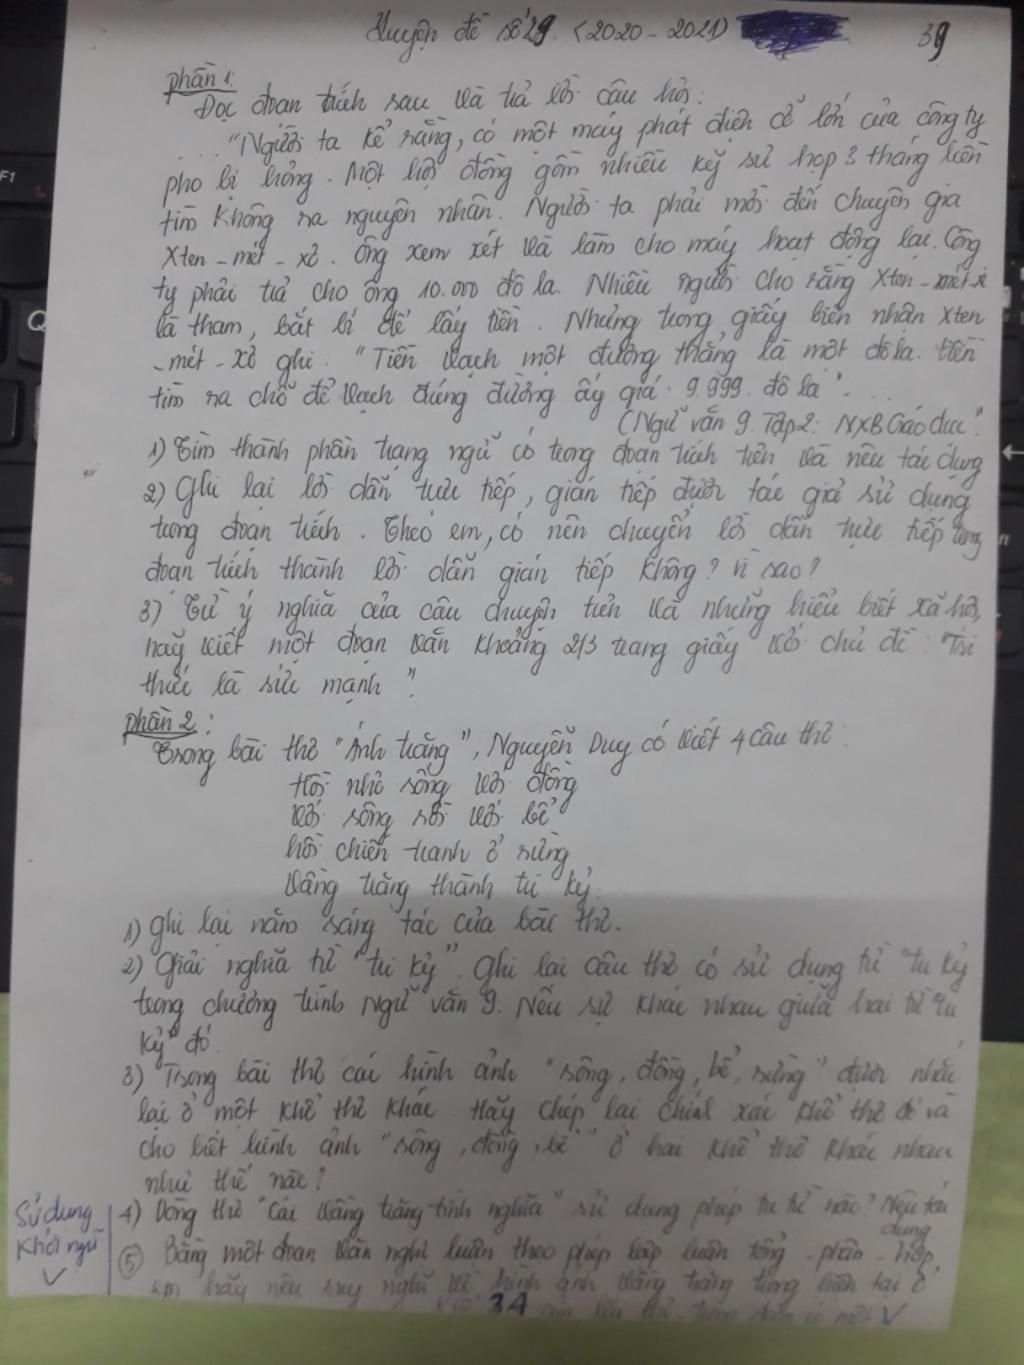 Luyện đề số 29. (2020 - 2021)
39
phần 1:
Đọc đoạn trích sau và trả lời câu hỏi:
... "Người ta kể rằng, có một máy phát điện cỡ lớn của công ty
pho bị hỏng. Một hội đồng gồm nhiều kỹ sư họp 3 tháng liền
tìm không ra nguyên nhân. Người ta phải mời đến chuyên gia
Xten - mét - xơ. ông xem xét và làm cho máy hoạt động lại. Công
ty phải trả cho ông 10.000 đô la. Nhiều người cho rằng Xten - mét-x
là tham, bắt bí để lấy tiền. Nhưng trong giấy biên nhận Xten
- mét - xơ ghi: "Tiền vạch một đường thẳng là một đô la. tiền
tìm ra chỗ để vạch đúng đường ấy giá: 9.999. đô la". ...
(Ngữ văn 9. Tập 2: NXB Giáo dục"
1) Tìm thành phần trạng ngữ có trong đoạn trích trên và nêu tác dụng
2) Ghi lại lời dẫn trực tiếp, gián tiếp được tác giả sử dụng
trong đoạn trích. Theo em, có nên chuyển lời dẫn trực tiếp trong
đoạn trích thành lời dẫn gián tiếp không? Vì sao?
3) Từ ý nghĩa của câu chuyện trên và những hiểu biết xã hội,
hãy viết một đoạn văn khoảng 2/3 trang giấy với chủ đề: "Tri
thức là sức mạnh".
phần 2:
Trong bài thơ "Ánh trăng", Nguyễn Duy có viết 4 câu thơ:
Hồi nhỏ sống với đồng
Với sông rồi với bể
hồi chiến tranh ở rừng
Vầng trăng thành tri kỷ.
1) Ghi lại năm sáng tác của bài thơ.
2) Giải nghĩa từ "tri kỷ". Ghi lại câu thơ có sử dụng từ "tri kỷ
trong chương trình Ngữ văn 9. Nêu sự khác nhau giữa hai từ "tri
kỷ" đó.
3) Trong bài thơ các hình ảnh "sông, đồng, bể, rừng" được nhắc
lại ở một khổ thơ khác. Hãy chép lại chính xác khổ thơ đó và
cho biết hình ảnh "sông, đồng, bể" ở hai khổ thơ khác nhau
như thế nào?
4) Dòng thơ "Cái vầng trăng tình nghĩa" sử dụng phép tu từ nào? Nêu tác
dụng
Sử dụng
khởi ngữ
5 Bằng một đoạn văn nghị luận theo phép lập luận tổng - phân - hợp,
em hãy nêu suy nghĩ về hình ảnh vầng trăng trong hiện tại ở
34 của bài thơ, trong đoạn có một